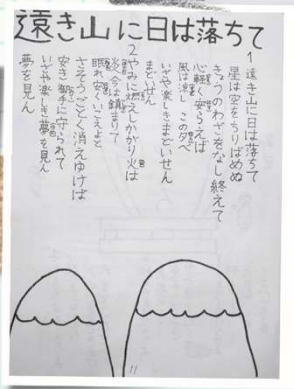 遠き山に日は落ちて
1 遠き山に日は落ちて
星は空をちりばめぬ
きょうのわざをなし終えて
心軽く安らえば
風は涼し この夕べ
いざや楽しきまどいせん
まどいせん
2 やみに燃えしかがり火は
炎今は鎮まりて
眠れ安くいこえよと
さそうごとく消えゆけば
安き御手に守られて
いざや楽しき夢を見ん
夢を見ん
11